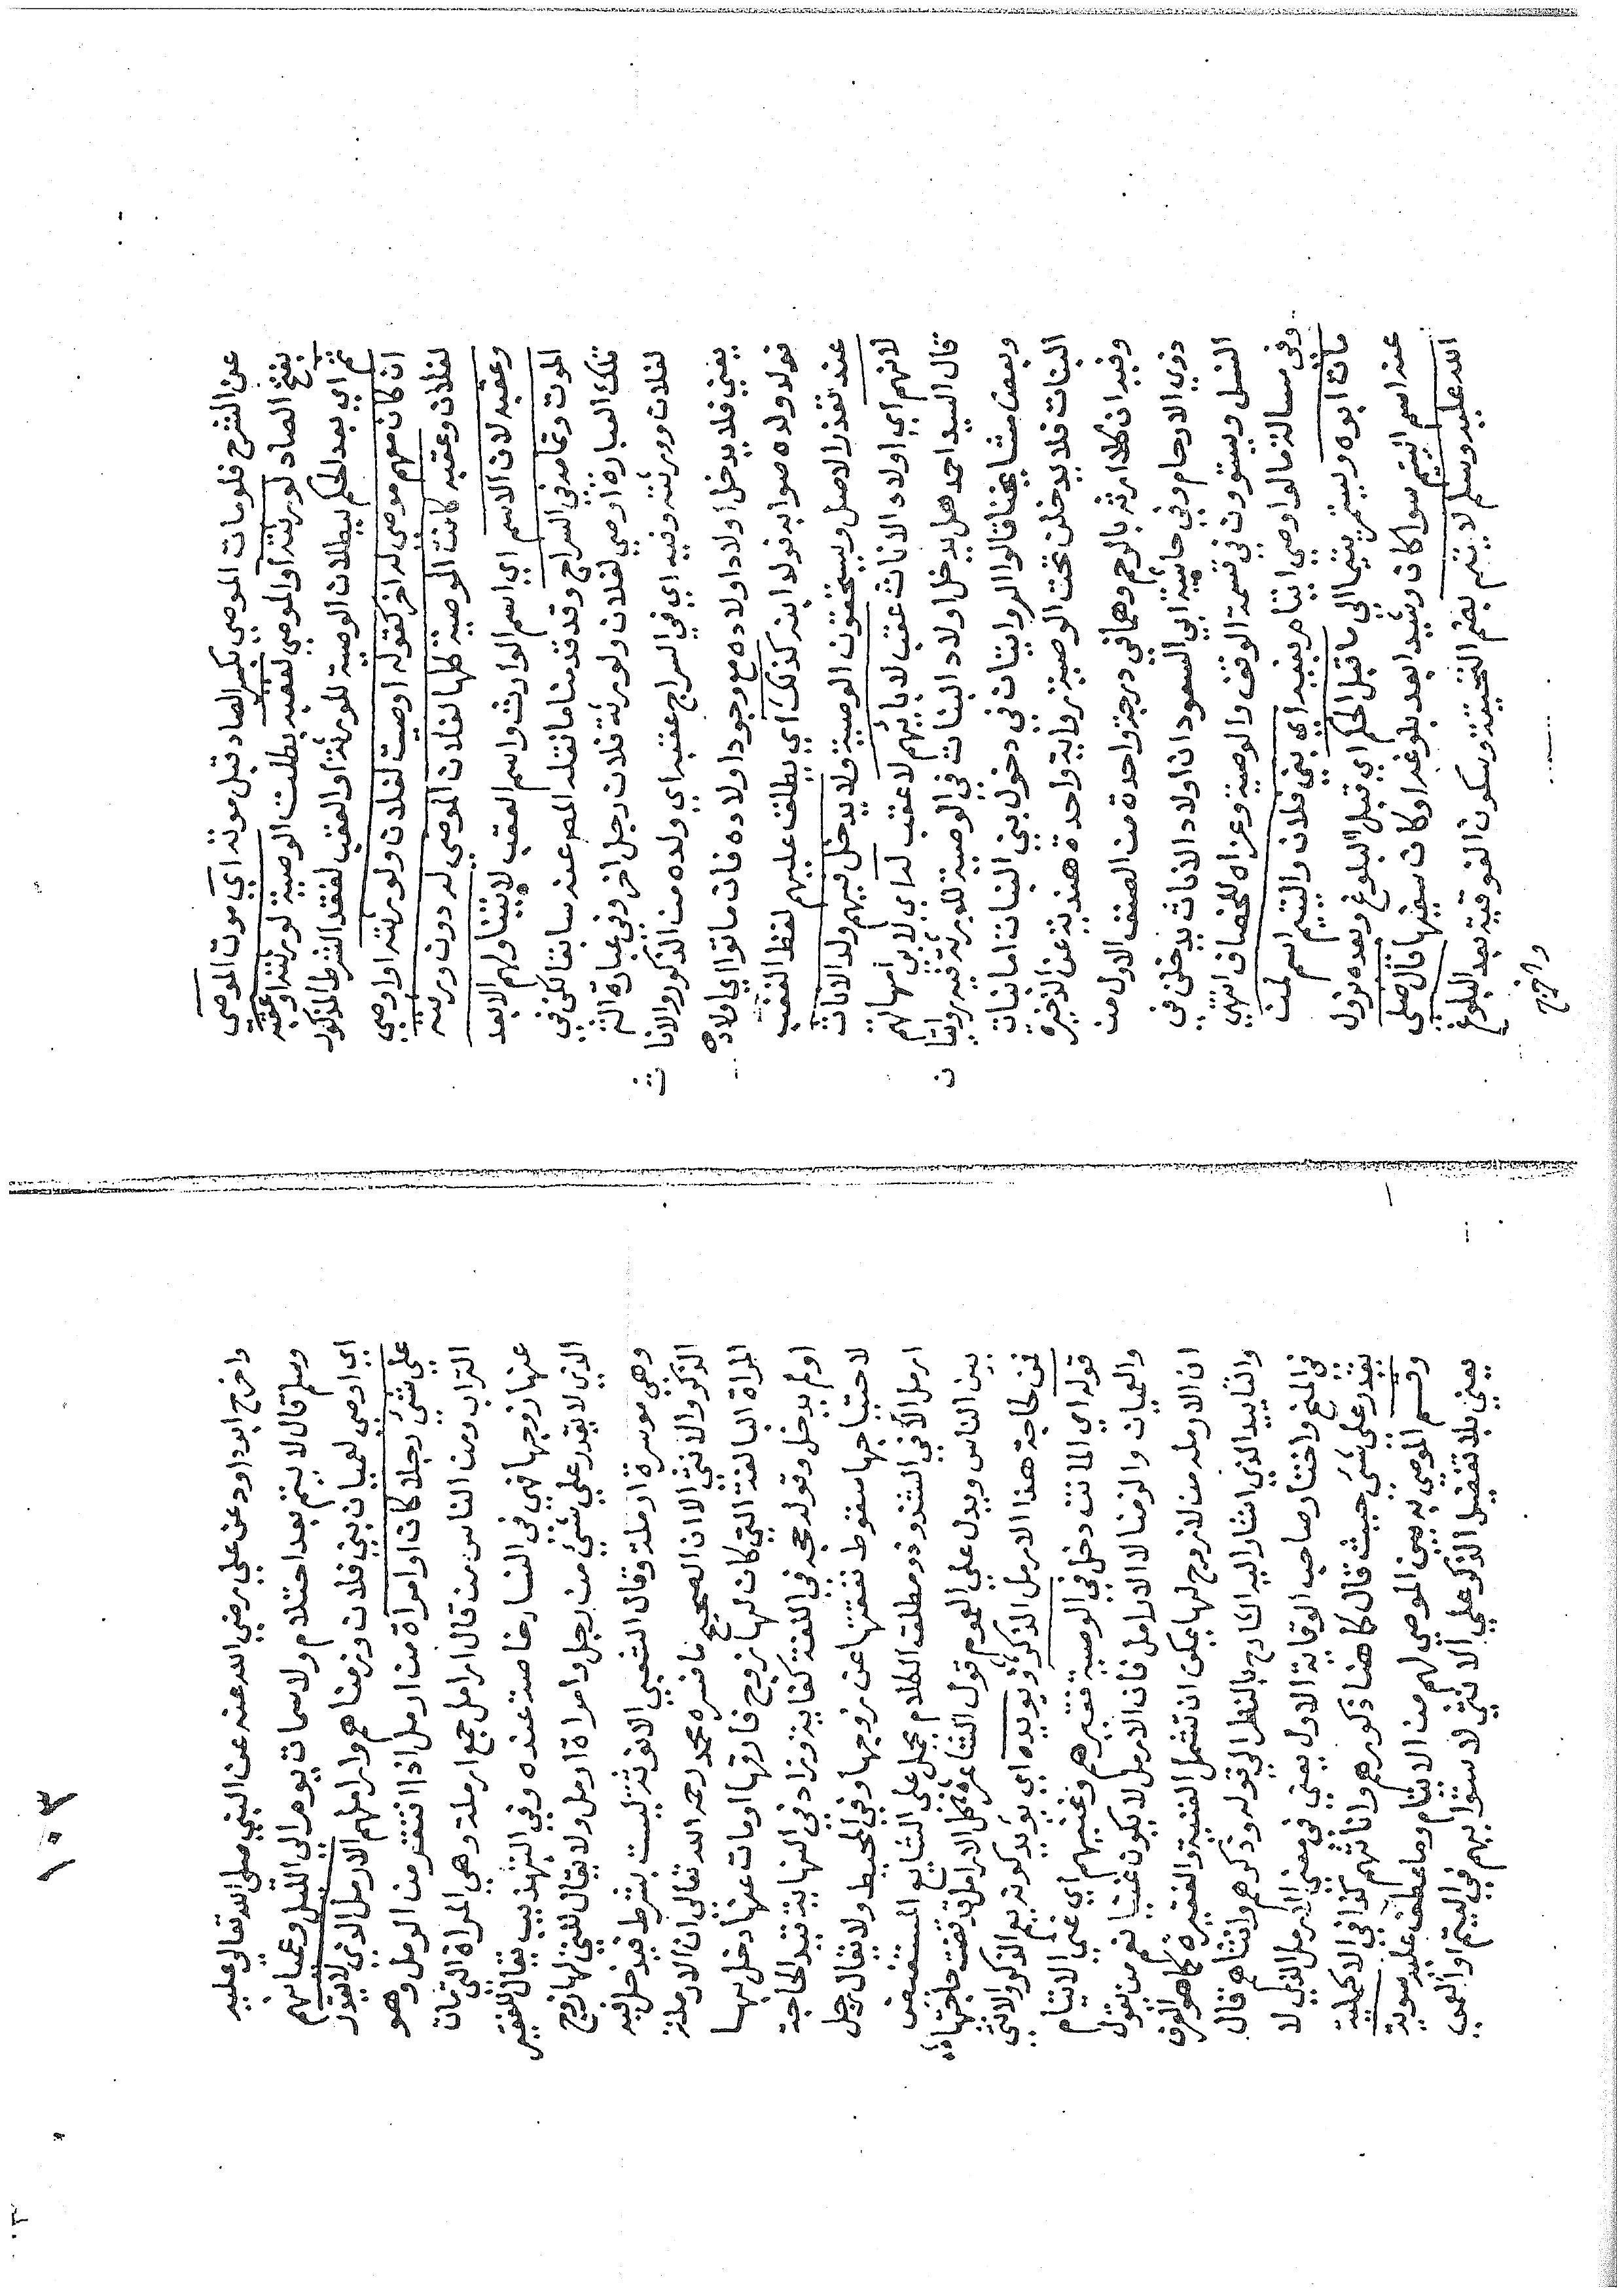 عن الشرح فلو مات الموصي بكسر الصاد قبل موته اي موت الموصي
بفتح الصاد لورثته او الموصي لعقبه بطلت الوصية لورثته او عقبه
ثم اي بعد الحكم ببطلان الوصية للورثة او العقب لفقد الشرط المذكور
ان كان معهم موصي له اخر كقوله اوصيت لفلان ولورثته او اوصي
لفلان وعقبه كانت الوصية كلها لفلان الموصي له دون ورثته
وعقبه لان الاسم اي اسم الوارث واسم العقب لا يتناولهم الا بعد
الموت وتمامه في السراج وقد قدمنا ما نقله المص عنه سابقا لكن في
تلك العبارة اوصي لفلان ولورثة فلان رجل اخر وفي عبارة الش
لفلان وورثته وفيه اي في السراج عقبه اي ولده من الذكور والاناث
يعني فلا يدخل اولاد اولاده مع وجود اولاده فان ماتوا اي اولاده
فولد ولده صوابه فولد ابنه كذلك اي يطلق عليهم لفظ العقب
عند تعذر الاصل ويستحقون الوصية ولا يدخل فيهم ولد الاناث
لانهم اي اولاد الاناث عقب لابائهم لا عقب له اي لابي امهاتهم
قال السيد احمد هل يدخل اولاد البنات في الوصية للورثة فيه روايتان
وبعض مشايخنا قالوا الروايتان في دخول بني البنات اما بنات
البنات فلا يدخلن تحت الوصية رواية واحدة هندية عن الذخيرة
وفيه ان كلا ارثه بالرحم وهما في درجة واحدة من الصنف الاول من
ذوي الارحام وفي حاشية ابي السعود ان اولاد الاناث يدخلن في
النسل ويستوون في قسمة الوقف والوصية وعزاه للخصاف انتهي
وفي مسالة ما لو اوصي ايتام بنيه اي بني فلان واليتيم اسم لمن
مات ابوه ويستمر يتيما الي ما قبل الحلم اي قبل البلوغ وبعده يزول
عنه اسم اليتيم سوا كان رشيدا بعد بلوغه او كان سفيها قال صلي
الله عليه وسلم لا يتم بضم التحتية وسكون الفوقية بعد البلوغ
واخرج
١٠٣
واخرج ابو داود عن علي رضي الله عنه عن النبي صلي الله تعالي عليه
وسلم قال لا يتم بعد احتلام ولا صمات يوم الي الليل وعميانهم
اي اوصي لعميان بني فلان وزمناهم واراملهم الارمل الذي لا يقدر
علي شيء رجلا كان او امراة من ارمل اذا افتقر من الرمل وهو
التراب ومن الناس من قال ارامل جمع ارملة وهي المراة التي مات
عنها زوجها فهي في النسا خاصة عنده وفي التهذيب يقال للفقير
الذي لا يقدر علي شيء من رجل وامراة ارمل ولا يقال للتي لها زوج
وهي موسرة ارملة وقال الشعبي الانوثة ليست بشرط فيدخل فيه
الذكر والانثي الا ان الصحيح ما فسره محمد رحمه الله تعالي ان الارملة
المراة البالغة التي كان لها زوج فارقها او مات عنها دخل بها
اولم يدخل وقوله حجة في اللغة كفاية وزاد في النهاية قيد الحاجة
لاحتياجها سقوط نفقتها عن زوجها وفي المحيط ولا يقال رجل
ارمل الا في الشذوذ ومطلق الكلام يحمل علي الشايع المستفيض
بين الناس ويدل علي العموم قول الشاعر كل الارامل قد قضيت حاجتها
فمن لحاجة هذا الارمل الذكر ويويده اي يويد كونه يعم الذكر والانثي
قوله اي الماتن دخل في الوصية فقيرهم وغنيهم اي غني الايتام
والعميان والزمنا لا الارامل فان الارمل لا يكون غنيا نعم من يقول
ان الارملة من لا زوج لها يمكن ان تشمل الغنية والفقيرة كما هو العرف
والتاييد الذي اشار اليه الشارح بالنظر الي قوله وذكرهم وانثاهم قال
في المنح واختار صاحب الوقاية الاول يعني في معني الارمل الذي لا
يقدر علي شيء حيث قال كما هنا ذكورهم واناثهم كذا في الاكملية
وقسم الموصي به بين الموصي لهم من الايتام وما عطف عليه سوية
يعني بلا تفضيل الذكر علي الانثي لاستوايهم في اليتم او العمي